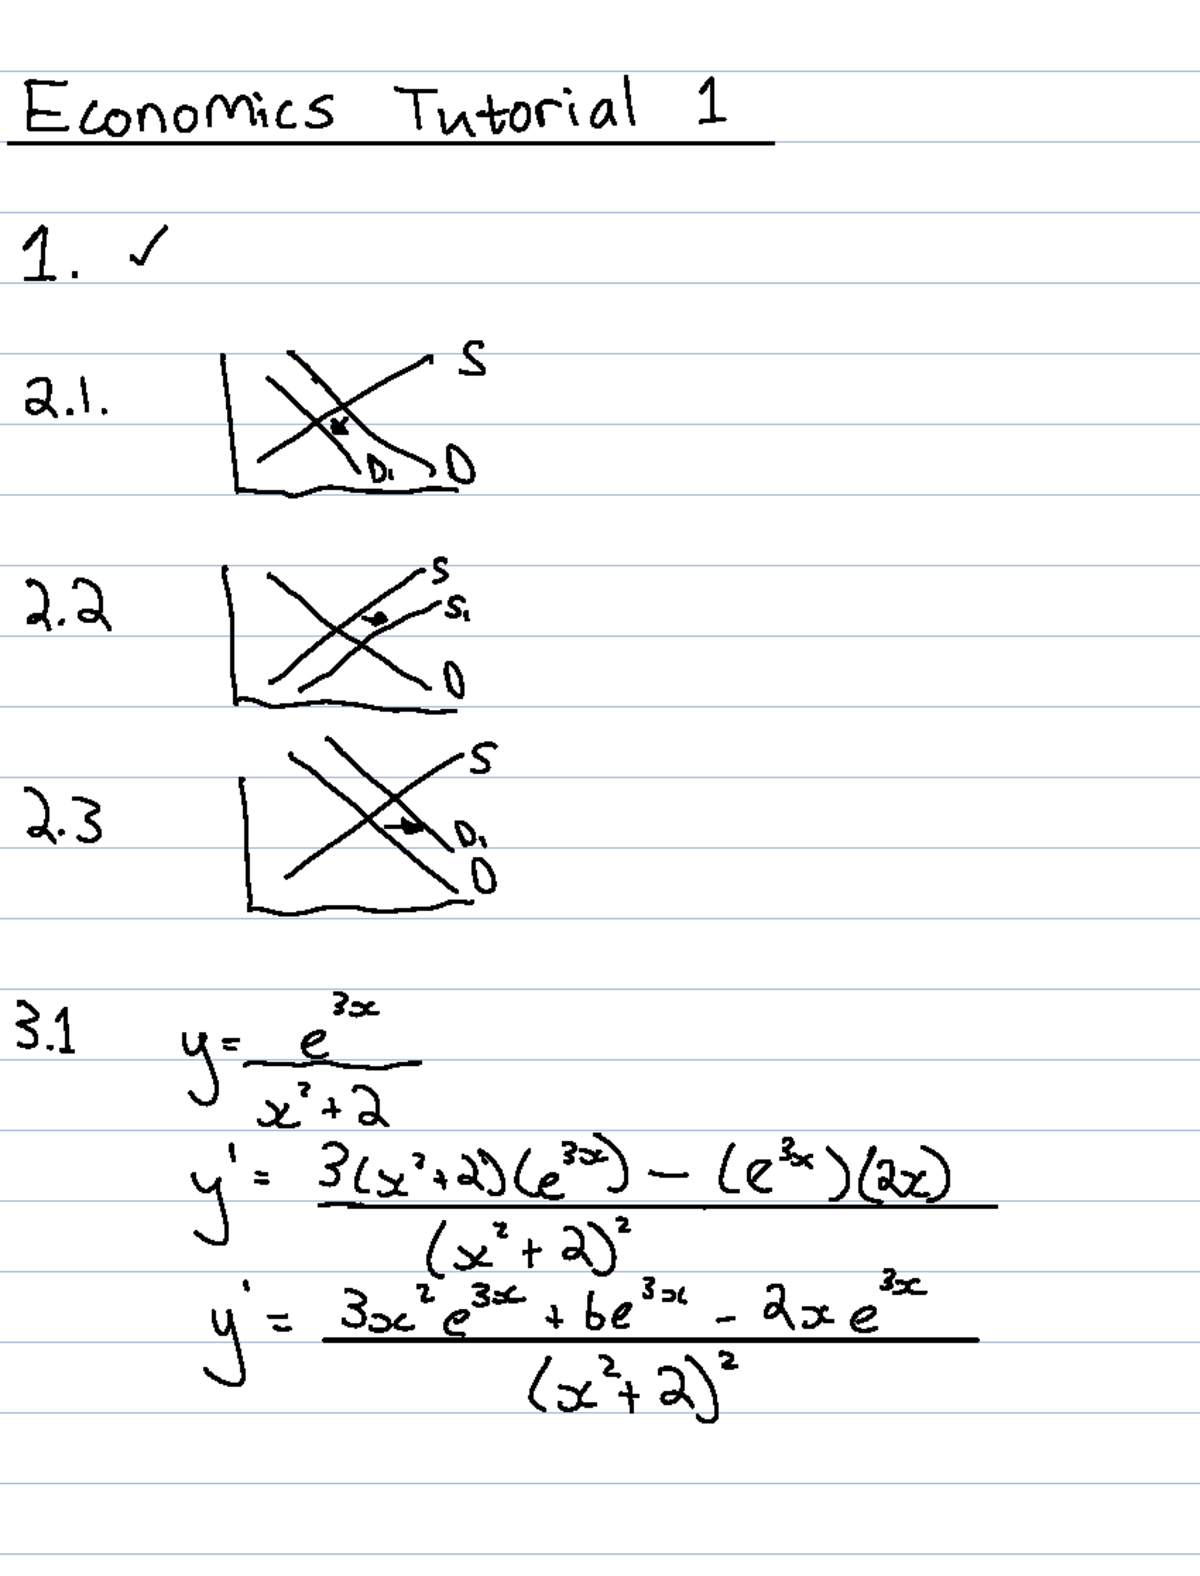 Economics Tutorial 1
1. ✓
2.1.
S
D₁ D
2.2
S
S₁
D
2.3
S
D₁
D
3.1 y = e^{3x} / x² + 2
y' = 3(x²+2)(e^{3x}) - (e^{3x})(2x) / (x² + 2)²
y' = 3x²e^{3x} + 6e^{3x} - 2xe^{3x} / (x² + 2)²